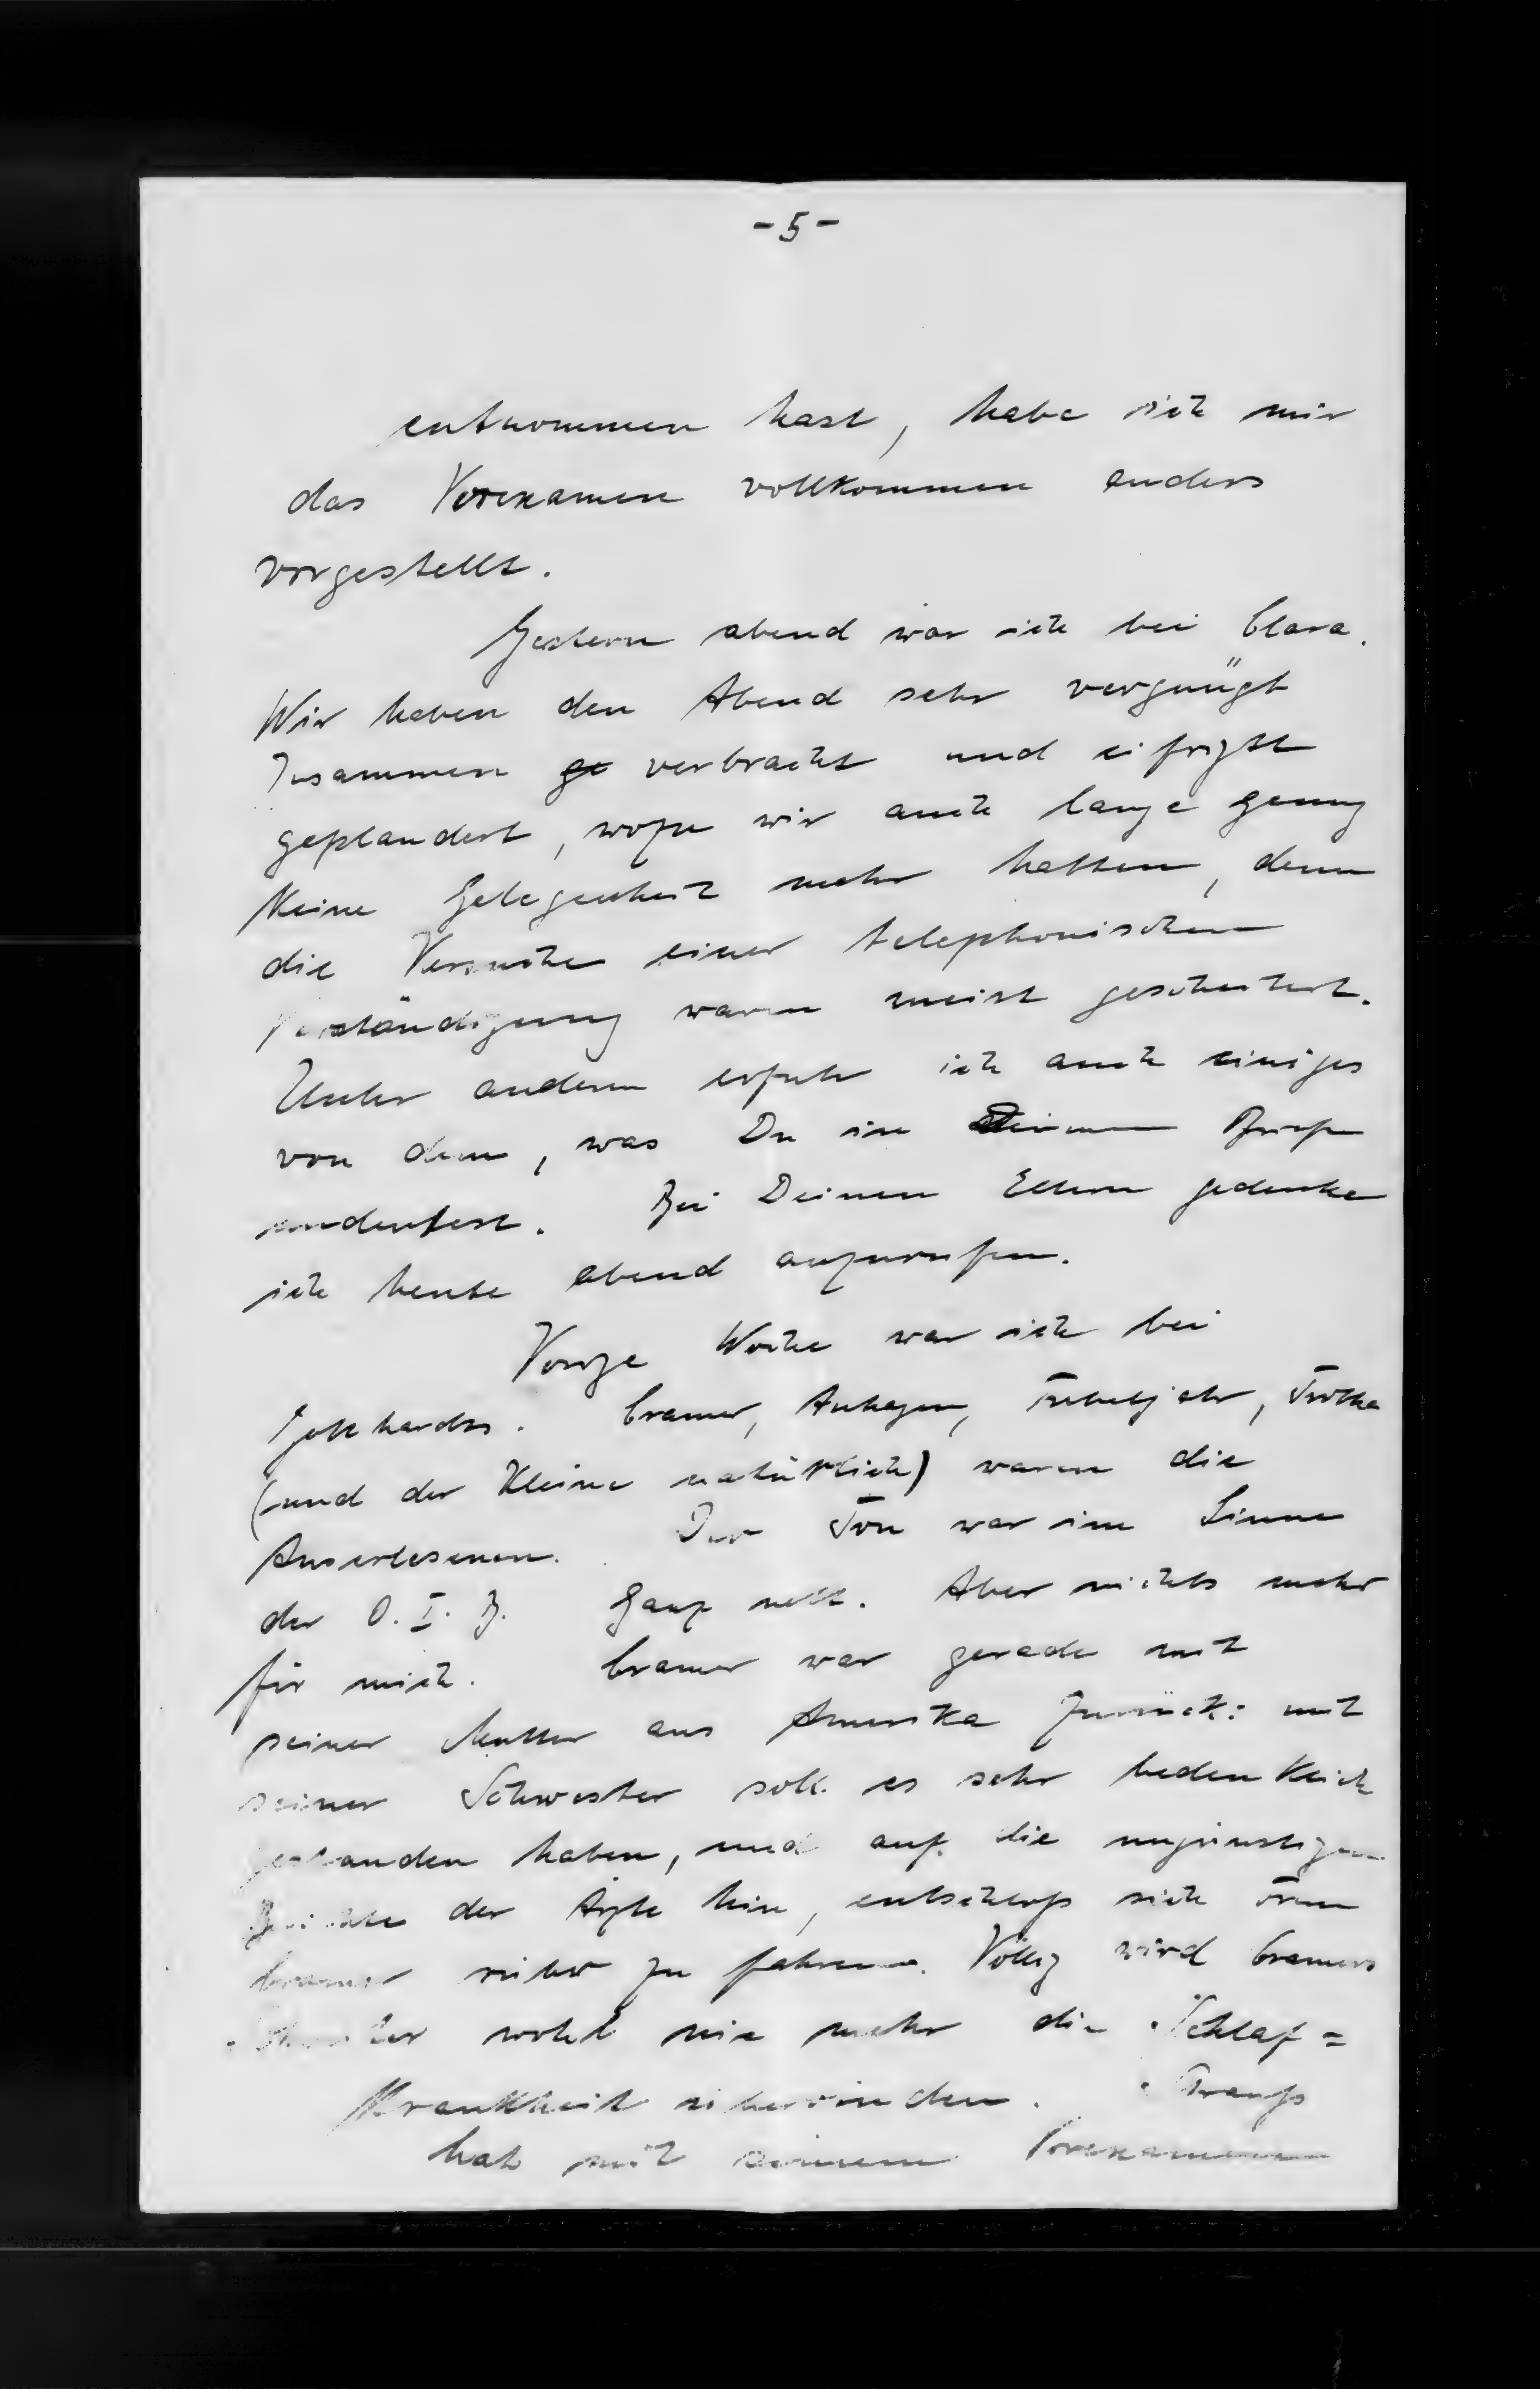 - 5 -
entnommen hast, habe ich mir
das Vorexamen vollkommen anders
vorgestellt.
Gestern abend war ich bei Clara.
Wir haben den Abend sehr vergnügt
zusammen verbracht und eifrigst
geplaudert, wozu wir auch lange genug
keine Gelegenheit mehr hatten, denn
die Versuche einer telephonischen
Verständigung waren meist gescheitert.
Unter anderm erfuhr ich auch einiges
von dem, was Du im Briefe
andeutest. Bei Deinen Eltern gedenke
ich heute abend anzurufen.
Vorige Woche war ich bei
Gotthardts. Cramer, Anhagen,
(und der Kleine natürlich) waren die
Auserlesenen. Der Ton war im Sinne
der O. I. B. Ganz nett. Aber nichts mehr
für mich. Cramer war gerade mit
seiner Mutter aus Amerika zurück: mit
seiner Schwester soll es sehr bedenklich
gestanden haben, und auf die ungünstigen
Berichte der Ärzte hin, entschloss sich
Cramer rüber zu fahren. Völlig wird Cramers
wohl nie mehr die Schlaf=
Krankheit überwinden.
hat mit seinem Vorexamen